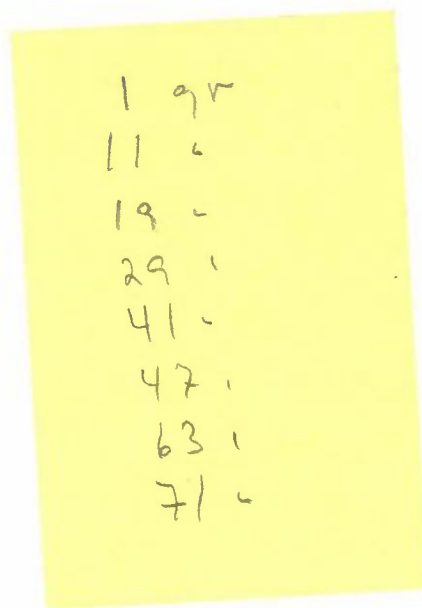 1 gr
11 "
19 "
29 "
41 "
47 "
63 "
71 "